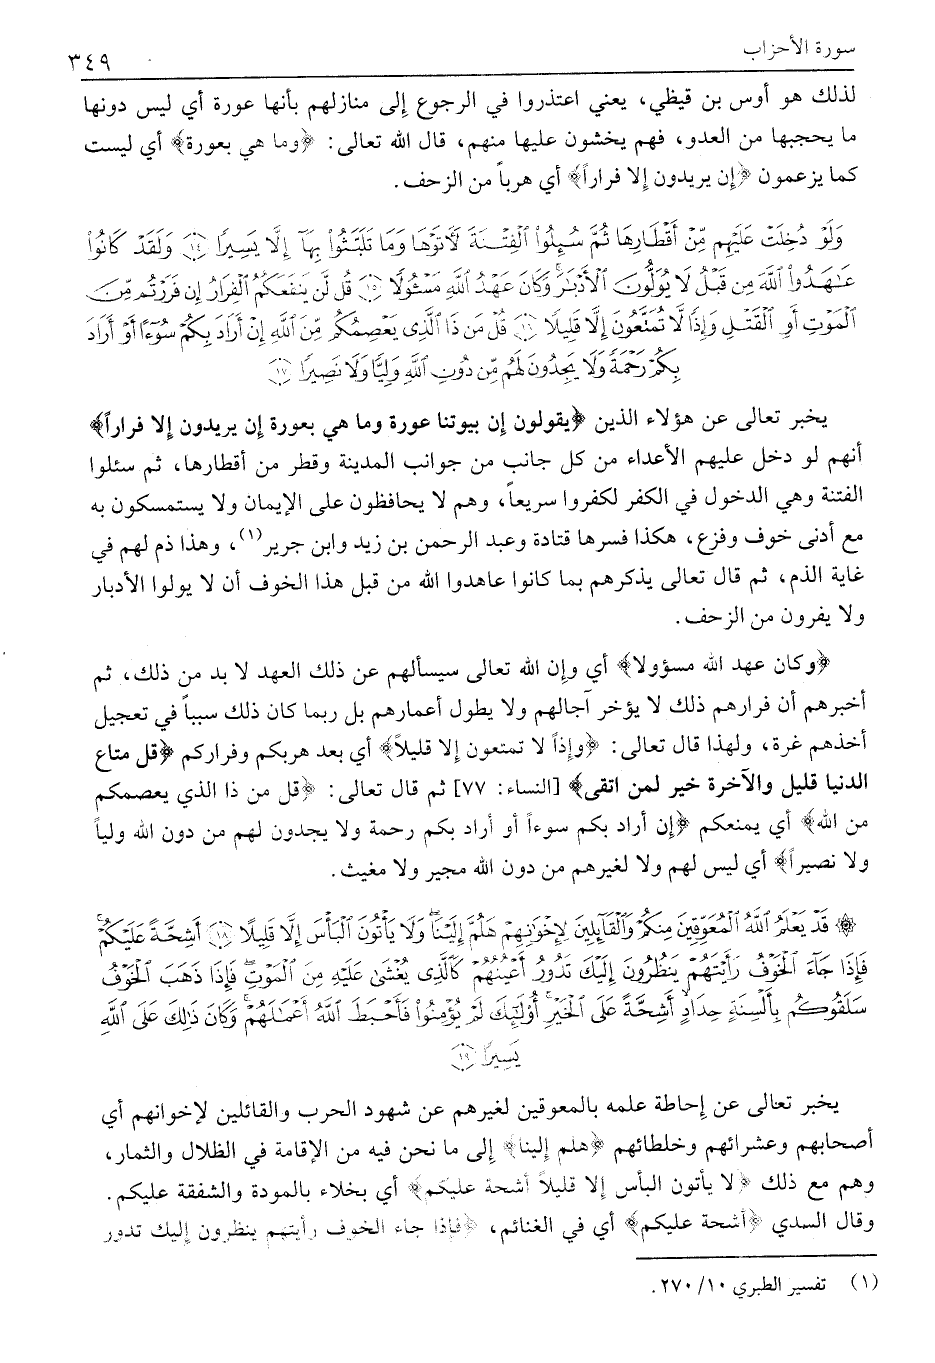 سورة الأحزاب ٣٤٩
لذلك هو أوس بن قيظي، يعني اعتذروا في الرجوع إلى منازلهم بأنها عورة أي ليس دونها
ما يحجبها من العدو، فهم يخشون عليها منهم، قال الله تعالى: ﴿وما هي بعورة﴾ أي ليست
كما يزعمون ﴿إن يريدون إلا فراراً﴾ أي هرباً من الزحف.
وَلَوْ دُخِلَتْ عَلَيْهِم مِّنْ أَقْطَارِهَا ثُمَّ سُئِلُوا۟ الْفِتْنَةَ لَآتَوْهَا وَمَا تَلَبَّثُوا۟ بِهَآ إِلَّا يَسِيرًا ﴿١٤﴾ وَلَقَدْ كَانُوا۟
عَٰهَدُوا۟ ٱللَّهَ مِن قَبْلُ لَا يُوَلُّونَ ٱلْأَدْبَٰرَ ۚ وَكَانَ عَهْدُ ٱللَّهِ مَسْـُٔولًا ﴿١٥﴾ قُل لَّن يَنفَعَكُمُ ٱلْفِرَارُ إِن فَرَرْتُم مِّنَ
ٱلْمَوْتِ أَوِ ٱلْقَتْلِ وَإِذًا لَّا تُمَتَّعُونَ إِلَّا قَلِيلًا ﴿١٦﴾ قُلْ مَن ذَا ٱلَّذِى يَعْصِمُكُم مِّنَ ٱللَّهِ إِنْ أَرَادَ بِكُمْ سُوٓءًا أَوْ أَرَادَ
بِكُمْ رَحْمَةً ۚ وَلَا يَجِدُونَ لَهُم مِّن دُونِ ٱللَّهِ وَلِيًّا وَلَا نَصِيرًا ﴿١٧﴾
يخبر تعالى عن هؤلاء الذين ﴿يقولون إن بيوتنا عورة وما هي بعورة إن يريدون إلا فراراً﴾
أنهم لو دخل عليهم الأعداء من كل جانب من جوانب المدينة وقطر من أقطارها، ثم سئلوا
الفتنة وهي الدخول في الكفر لكفروا سريعاً، وهم لا يحافظون على الإيمان ولا يستمسكون به
مع أدنى خوف وفزع، هكذا فسرها قتادة وعبد الرحمن بن زيد وابن جرير(١)، وهذا ذم لهم في
غاية الذم، ثم قال تعالى يذكرهم بما كانوا عاهدوا الله من قبل هذا الخوف أن لا يولوا الأدبار
ولا يفرون من الزحف.
﴿وكان عهد الله مسؤولا﴾ أي وإن الله تعالى سيسألهم عن ذلك العهد لا بد من ذلك، ثم
أخبرهم أن فرارهم ذلك لا يؤخر آجالهم ولا يطول أعمارهم بل ربما كان ذلك سبباً في تعجيل
أخذهم غرة، ولهذا قال تعالى: ﴿وإذاً لا تمتعون إلا قليلاً﴾ أي بعد هربكم وفراركم ﴿قل متاع
الدنيا قليل والآخرة خير لمن اتقى﴾ [النساء: ٧٧] ثم قال تعالى: ﴿قل من ذا الذي يعصمكم
من الله﴾ أي يمنعكم ﴿إن أراد بكم سوءاً أو أراد بكم رحمة ولا يجدون لهم من دون الله ولياً
ولا نصيراً﴾ أي ليس لهم ولا لغيرهم من دون الله مجير ولا مغيث.
۞ قَدْ يَعْلَمُ ٱللَّهُ ٱلْمُعَوِّقِينَ مِنكُمْ وَٱلْقَآئِلِينَ لِإِخْوَٰنِهِمْ هَلُمَّ إِلَيْنَا ۖ وَلَا يَأْتُونَ ٱلْبَأْسَ إِلَّا قَلِيلًا ﴿١٨﴾ أَشِحَّةً عَلَيْكُمْ ۖ
فَإِذَا جَآءَ ٱلْخَوْفُ رَأَيْتَهُمْ يَنظُرُونَ إِلَيْكَ تَدُورُ أَعْيُنُهُمْ كَٱلَّذِى يُغْشَىٰ عَلَيْهِ مِنَ ٱلْمَوْتِ ۖ فَإِذَا ذَهَبَ ٱلْخَوْفُ
سَلَقُوكُم بِأَلْسِنَةٍ حِدَادٍ أَشِحَّةً عَلَى ٱلْخَيْرِ ۚ أُو۟لَٰٓئِكَ لَمْ يُؤْمِنُوا۟ فَأَحْبَطَ ٱللَّهُ أَعْمَٰلَهُمْ ۚ وَكَانَ ذَٰلِكَ عَلَى ٱللَّهِ
يَسِيرًا ﴿١٩﴾
يخبر تعالى عن إحاطة علمه بالمعوقين لغيرهم عن شهود الحرب والقائلين لإخوانهم أي
أصحابهم وعشرائهم وخلطائهم ﴿هلم إلينا﴾ إلى ما نحن فيه من الإقامة في الظلال والثمار،
وهم مع ذلك ﴿لا يأتون البأس إلا قليلاً أشحة عليكم﴾ أي بخلاء بالمودة والشفقة عليكم.
وقال السدي ﴿أشحة عليكم﴾ أي في الغنائم، ﴿فإذا جاء الخوف رأيتهم ينظرون إليك تدور
(١) تفسير الطبري ١٠/ ٢٧٠.